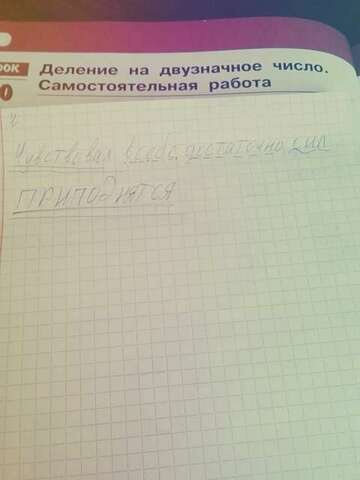 РОК Деление на двузначное число.
1 Самостоятельная работа
Ч
Чувствовал в себе достаточно сил
приподнятся